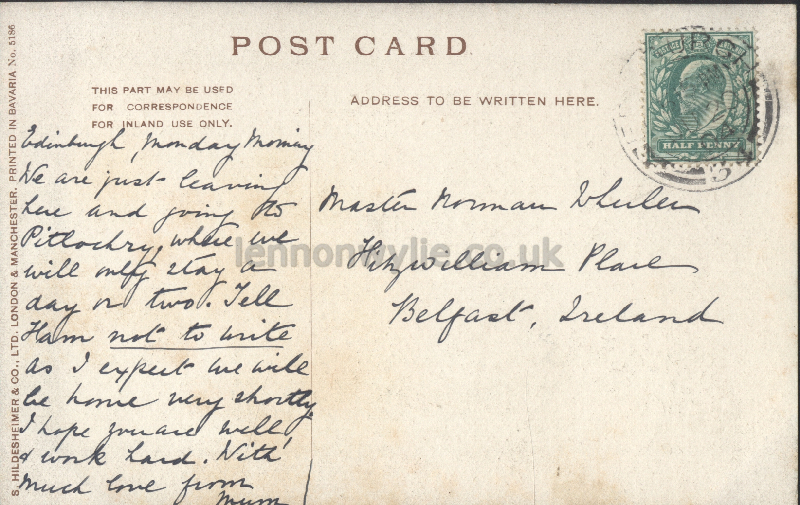 POST CARD
THIS PART MAY BE USED
FOR CORRESPONDENCE
FOR INLAND USE ONLY.
ADDRESS TO BE WRITTEN HERE.
HALF PENNY
S. HILDESHEIMER & CO., LTD. LONDON & MANCHESTER. PRINTED IN BAVARIA No. 5186
Edinburgh, Monday Morning
We are just leaving
here and going to
Pitlochry, where we
will only stay a
day or two. Tell
Ham not to write
as I expect we will
be home very shortly
I hope you are well
& work hard. With
much love from
Mum
Master Norman Wheeler
Fitzwilliam Place
Belfast, Ireland
lennonwylie.co.uk